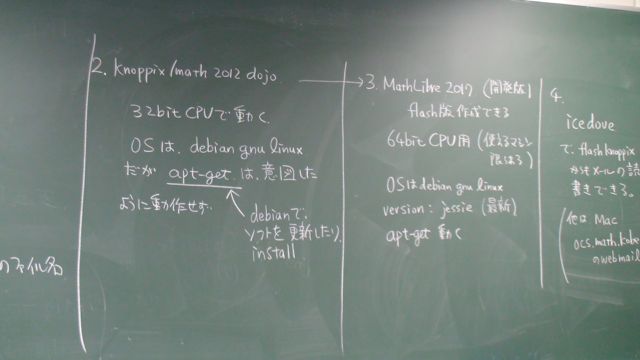 のファイル名
2. knoppix/math 2012 dojo
32bit CPUで動く
OSは、debian gnu linux
だが apt-get は、意図した
ように動作せず.
debianで、
ソフトを更新したり、
install
3. MathLibre 2014 (開発版)
flash版作成できる
64bit CPU用 (使えるマシン
限はる)
OSはdebian gnu linux
version: jessie (最新)
apt-get 動く
4.
icedove
で、flash knoppix
メールの読
書きできる。
他は Mac
ocs.math.kobe
のwebmail